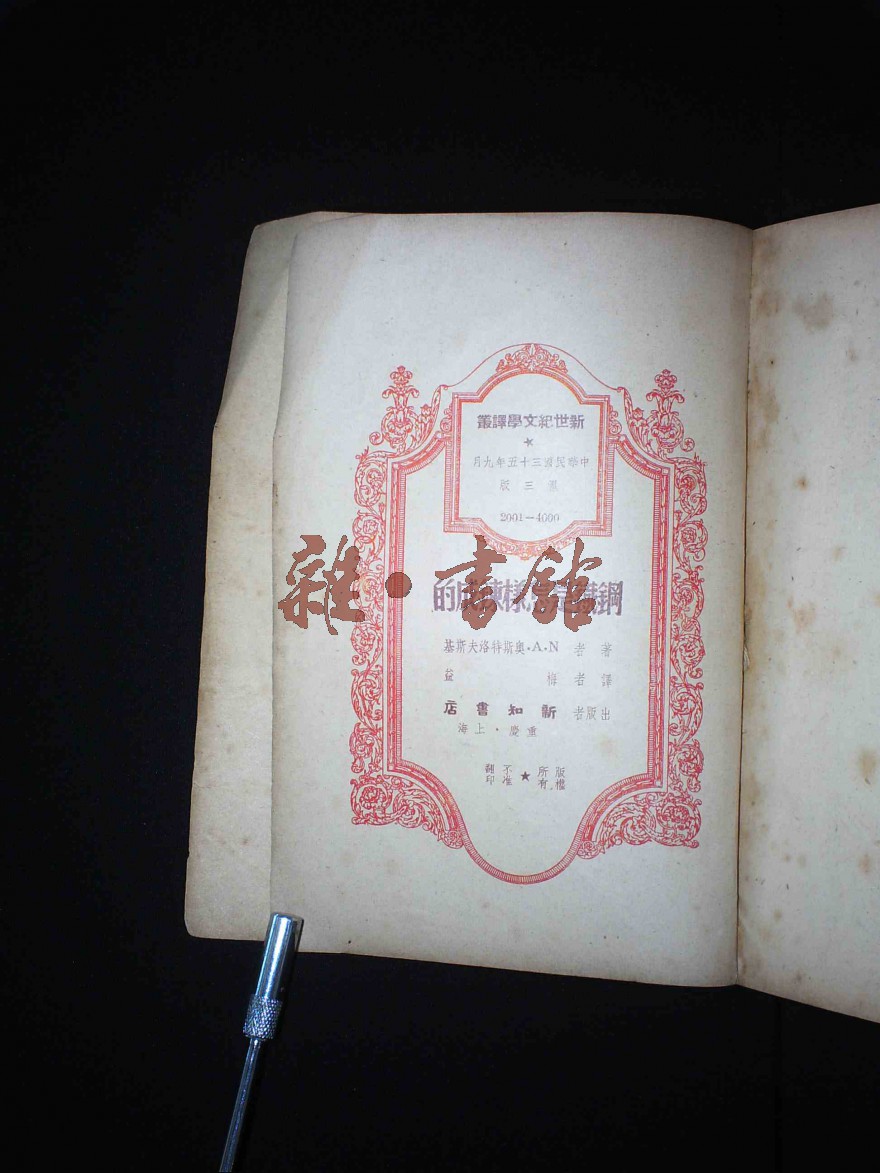 新世紀文學譯叢
★
中華民國三十五年九月
第三版
2001—4000
雜·書館
鋼鐵是怎樣煉成的
著者 N·A·奧斯特洛夫斯基
譯者 梅益
出版者 新知書店
重慶·上海
版權所有★不准翻印